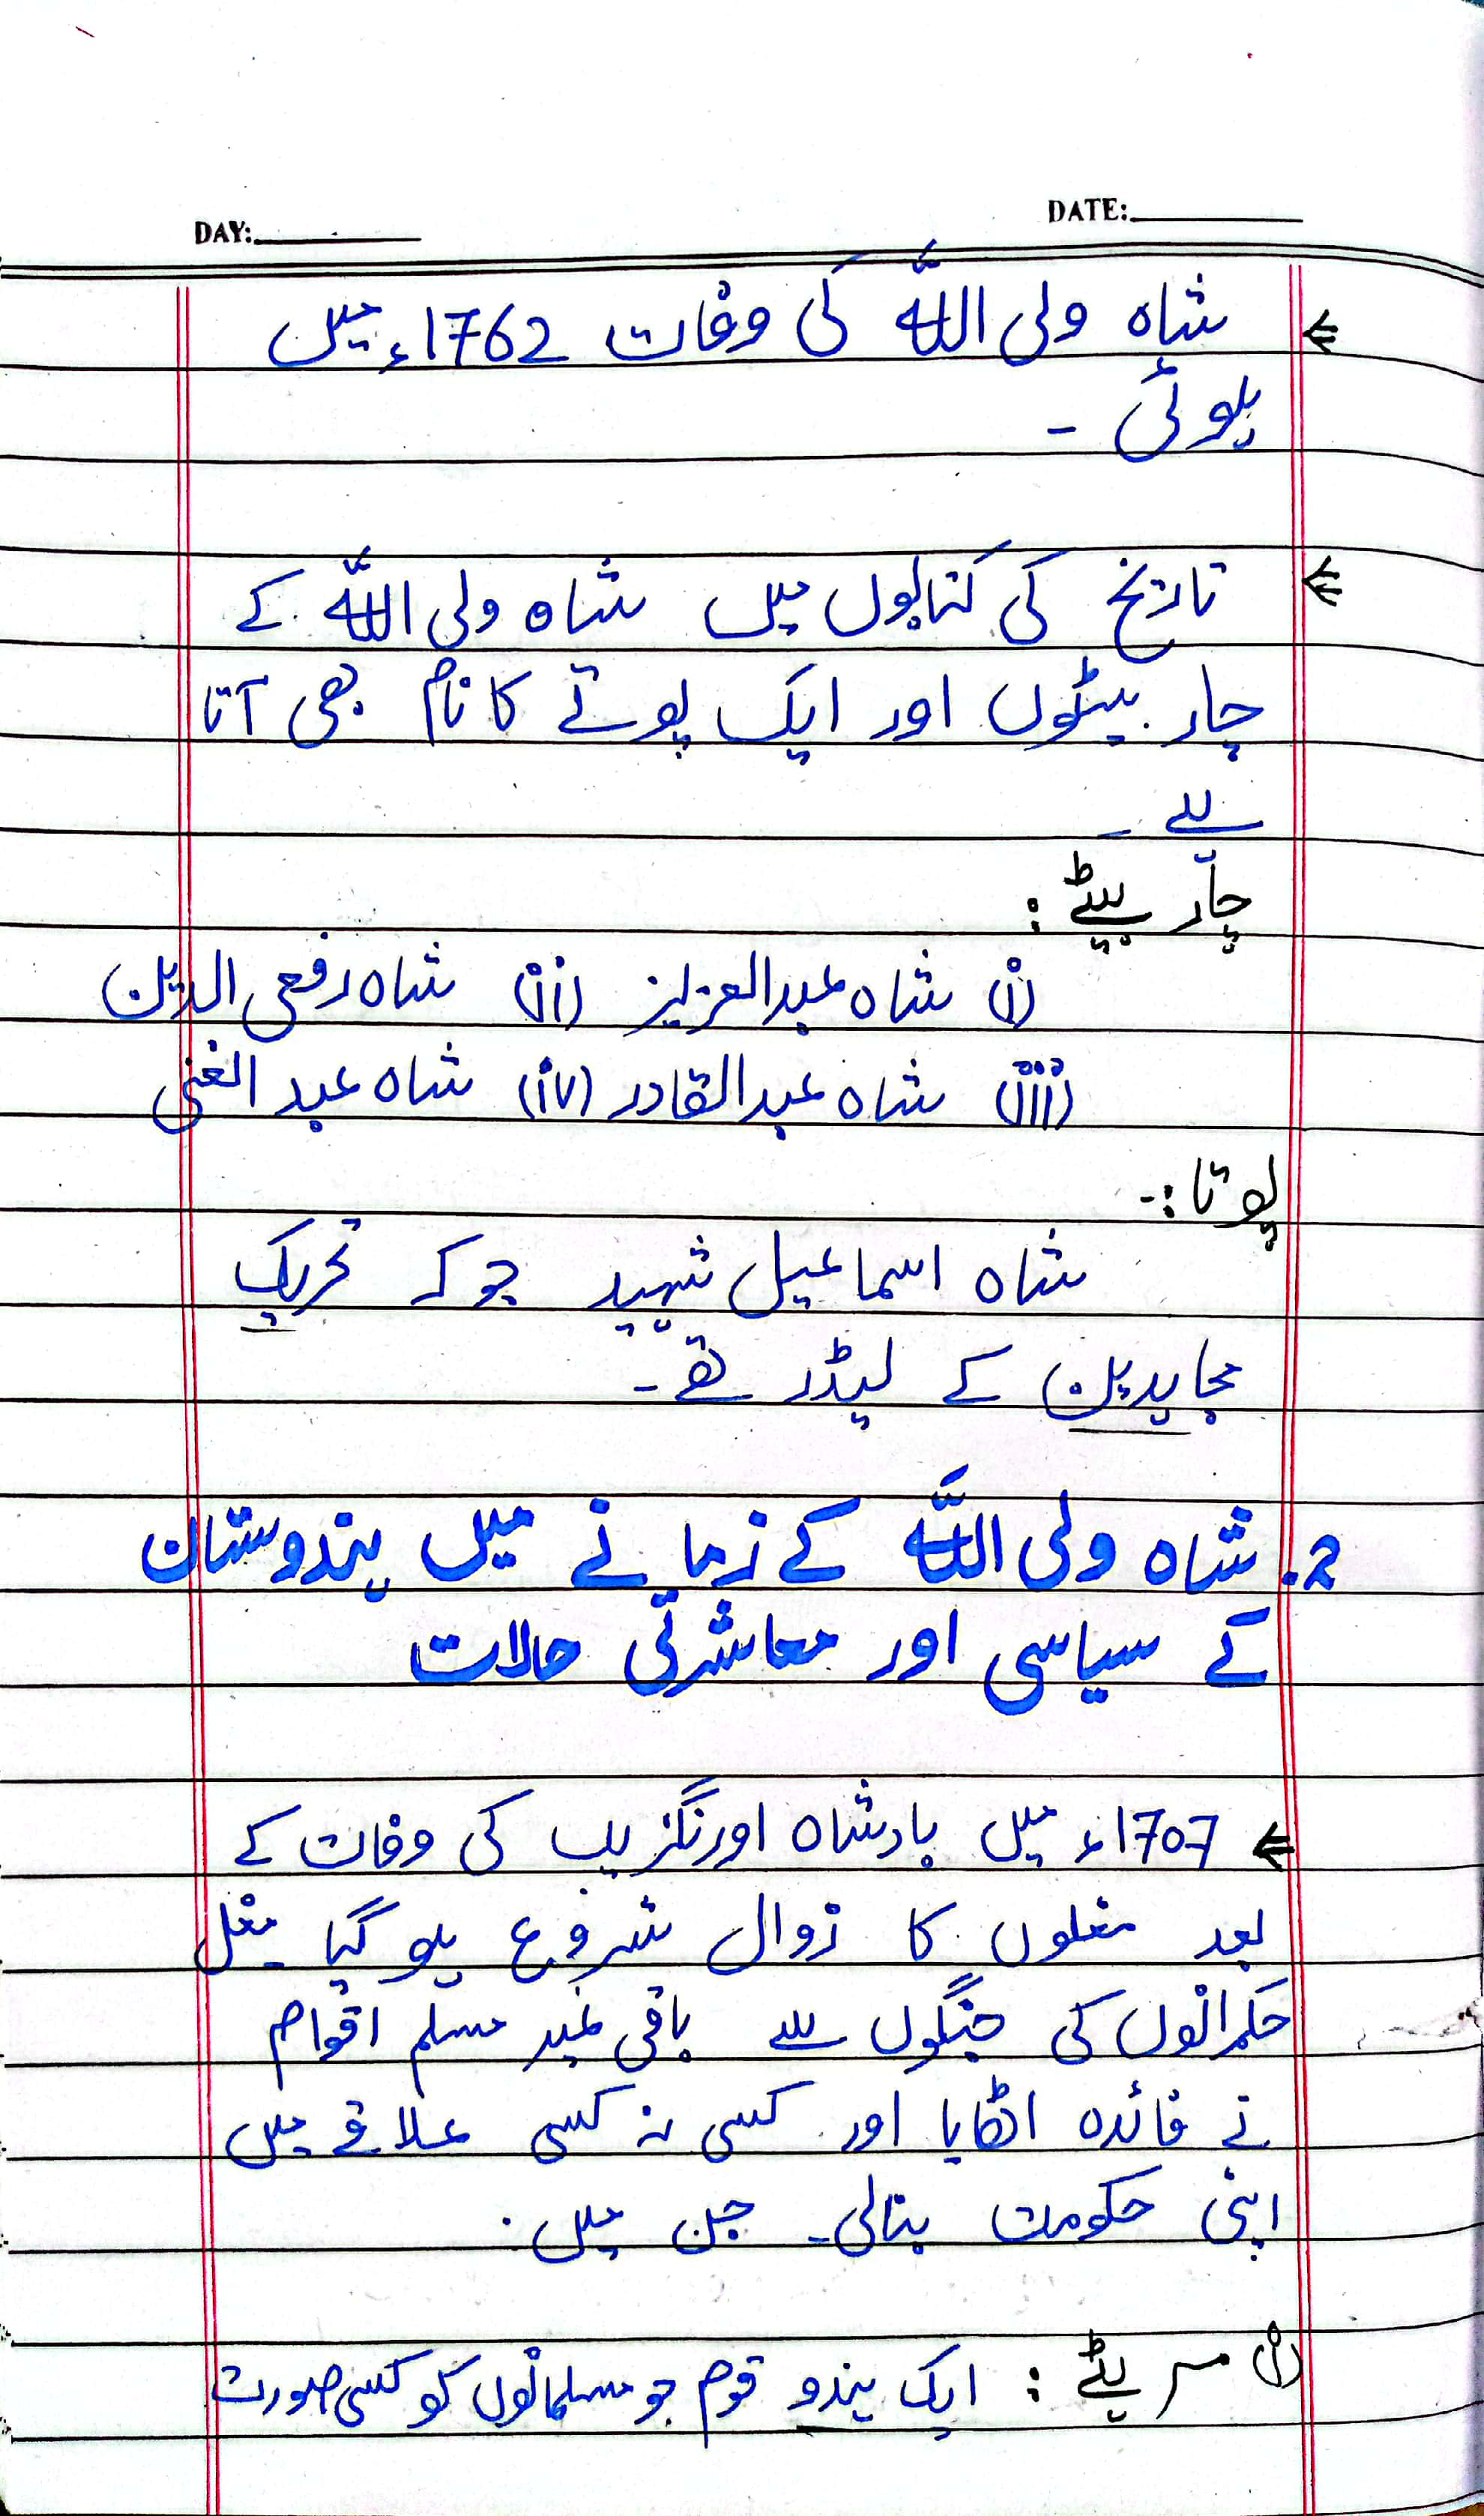 DAY:________ DATE:________
⇐ شاہ ولی اللہ کی وفات 1762ء میں
ہوئی ۔
⇐ تاریخ کی کتابوں میں شاہ ولی اللہ کے
چار بیٹوں اور ایک پوتے کا نام بھی آتا
ہے ۔
چار بیٹے :
(i) شاہ عبدالعزیز (ii) شاہ رفعی الدین
(iii) شاہ عبدالقادر (iv) شاہ عبد الغنی
پوتا :-
شاہ اسماعیل شہید جو کہ تحریک
مجاہدین کے لیڈر تھے ۔
2. شاہ ولی اللہ کے زمانے میں ہندوستان
کے سیاسی اور معاشرتی حالات
⇐ 1707ء میں بادشاہ اورنگزیب کی وفات کے
بعد مغلوں کا زوال شروع ہو گیا ۔ مغل
حکمرانوں کی جنگوں سے باقی غیر مسلم اقوام
نے فائدہ اٹھایا اور کسی نہ کسی علاقے میں
اپنی حکومت بنالی ۔ جن میں :
(i) مرہٹے : ایک ہندو قوم جو مسلمانوں کو کسی صورت